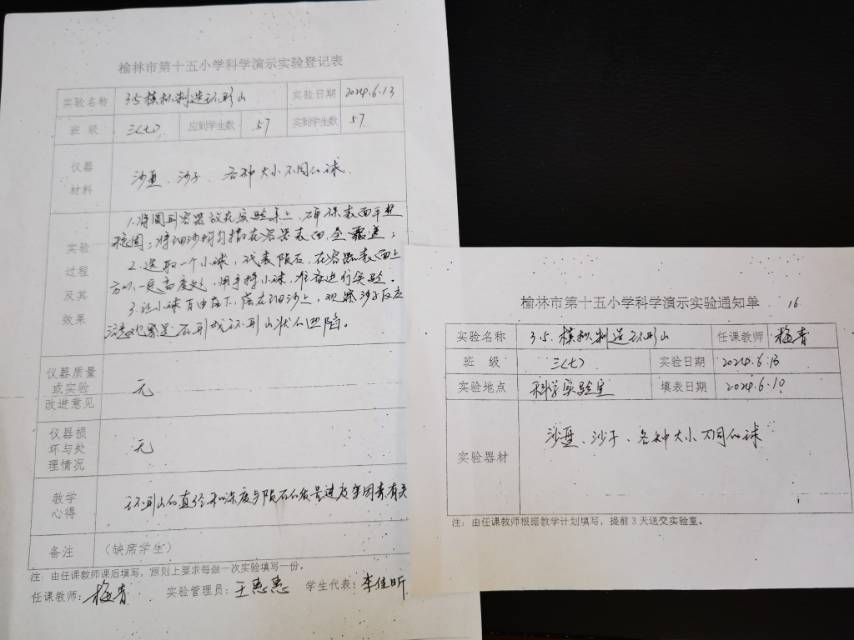 榆林市第十五小学科学演示实验登记表
实验名称 3.5模拟制造环形山 实验日期 2024.6.13
班 级 三(七) 应到学生数 57 实到学生数 57
仪器
材料
沙盘、沙子、各种大小不同的球
实验
过程
及其
效果
1.将圆形容器放在实验桌上,确保表面平整
稳固;将细沙均匀铺在容器表面,全覆盖;
2.选取一个小球,代表陨石,在容器表面上
方的一定高度处,用手持小球,准备进行实验.
3.让小球自由落下,落在细沙上,观察沙子反应
注意观察是否形成环形山状的凹陷。
仪器质量
或实验
改进意见
无
仪器损
坏与处
理情况
无
教学
心得
环形山的直径和深度与陨石的质量速度等因素有关
备注 (缺席学生)
注:由任课教师课后填写,原则上要求每做一次实验填写一份。
任课教师:梅青 实验管理员:王惠惠 学生代表:李佳昕
榆林市第十五小学科学演示实验通知单 16
实验名称 3.5.模拟制造环形山 任课教师 梅青
班 级 三(七) 实验日期 2024.6.13
实验地点 科学实验室 填表日期 2024.6.10
实验器材 沙盘、沙子、各种大小不同的球
注:由任课教师根据教学计划填写,提前3天送交实验室。